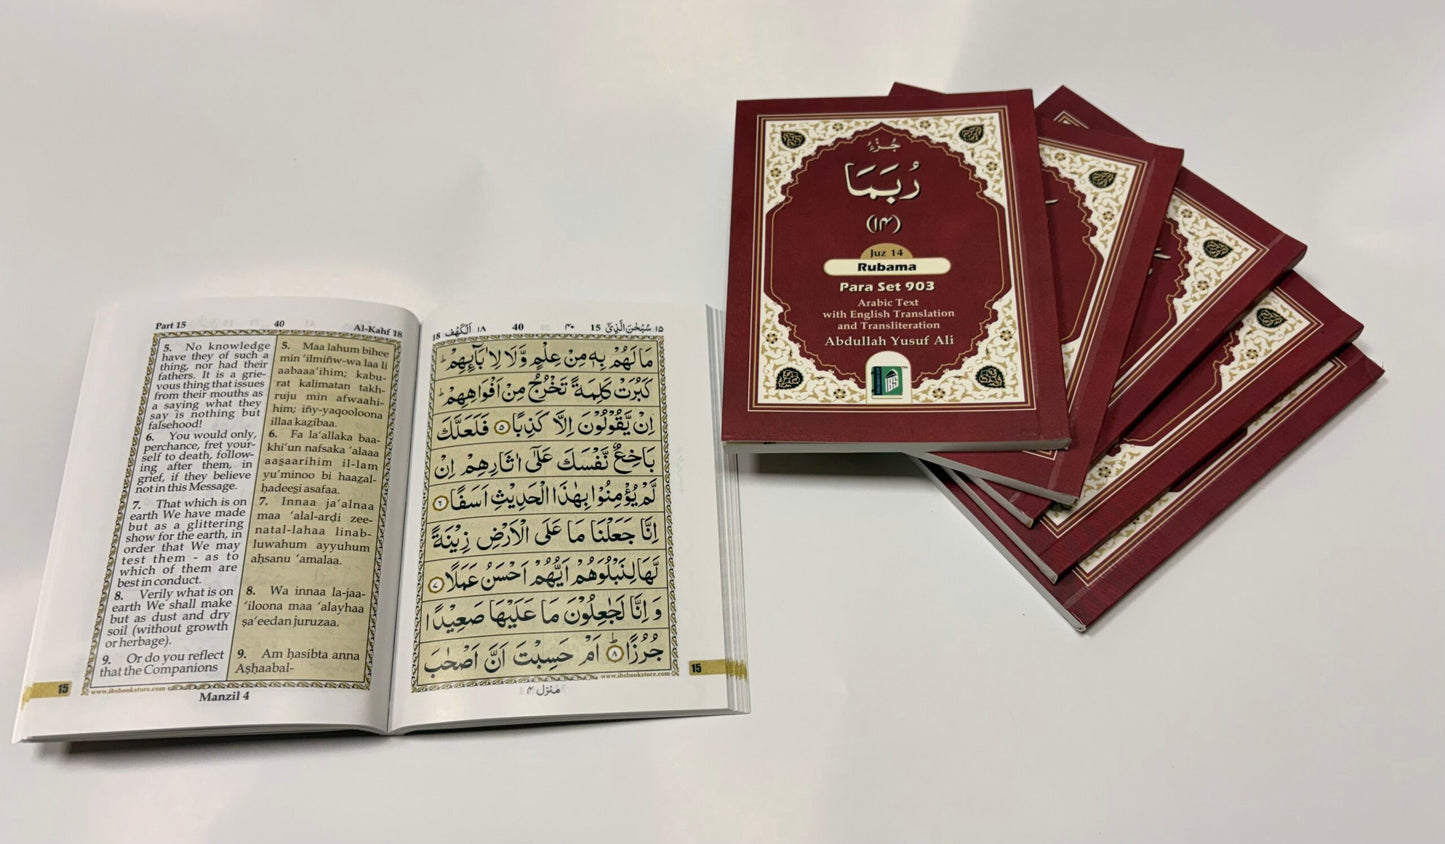 Part 15 40 Al-Kahf 18
5. No knowledge
have they of such a
thing, nor had their
fathers. It is a grie-
vous thing that issues
from their mouths as
a saying what they
say is nothing but
falsehood!
6. You would only,
perchance, fret your-
self to death, follow-
ing after them, in
grief, if they believe
not in this Message.
7. That which is on
earth We have made
but as a glittering
show for the earth, in
order that We may
test them - as to
which of them are
best in conduct.
8. Verily what is on
earth We shall make
but as dust and dry
soil (without growth
or herbage).
9. Or do you reflect
that the Companions
5. Maa lahum bihee
min ‘ilmiñw-wa laa li
aabaaa’ihim; kabu-
rat kalimatan takh-
ruju min afwaahi-
him; iñy-yaqooloona
illaa kaẓibaa.
6. Fa la‘allaka baa-
khi‘un nafsaka ‘alaaa
aaṣaarihim il-lam
yu’minoo bi haaẓal-
ḥadeeṣi asafaa.
7. Innaa ja‘alnaa
maa ‘alal-arḍi zee-
natal-lahaa linab-
luwahum ayyuhum
aḥsanu ‘amalaa.
8. Wa innaa la-jaa-
‘iloona maa ‘alayhaa
ṣa‘eedan juruzaa.
9. Am ḥasibta anna
Aṣḥaabal-
15 www.ibsbookstore.com
Manzil 4
18 اَلْكَهْف ١٨ 40 ۴۰ 15 سُبْحٰنَ الَّذِيْٓ ١٥
مَا لَهُمْ بِهٖ مِنْ عِلْمٍ وَّلَا لِاٰبَآئِهِمْ ؕ
كَبُرَتْ كَلِمَةً تَخْرُجُ مِنْ اَفْوَاهِهِمْ ؕ
اِنْ يَّقُوْلُوْنَ اِلَّا كَذِبًا ۝٥ فَلَعَلَّكَ
بَاخِعٌ نَّفْسَكَ عَلٰٓى اٰثَارِهِمْ اِنْ
لَّمْ يُؤْمِنُوْا بِهٰذَا الْحَدِيْثِ اَسَفًا ۝٦
اِنَّا جَعَلْنَا مَا عَلَى الْاَرْضِ زِيْنَةً
لَّهَا لِنَبْلُوَهُمْ اَيُّهُمْ اَحْسَنُ عَمَلًا ۝٧
وَ اِنَّا لَجٰعِلُوْنَ مَا عَلَيْهَا صَعِيْدًا
جُرُزًا ؕ ۝٨ اَمْ حَسِبْتَ اَنَّ اَصْحٰبَ
www.ibsbookstore.com 15
مَنْزِل ۴
جُزْءُ
رُبَمَا
(۱۴)
Juz 14
Rubama
Para Set 903
Arabic Text
with English Translation
and Transliteration
Abdullah Yusuf Ali
IBS